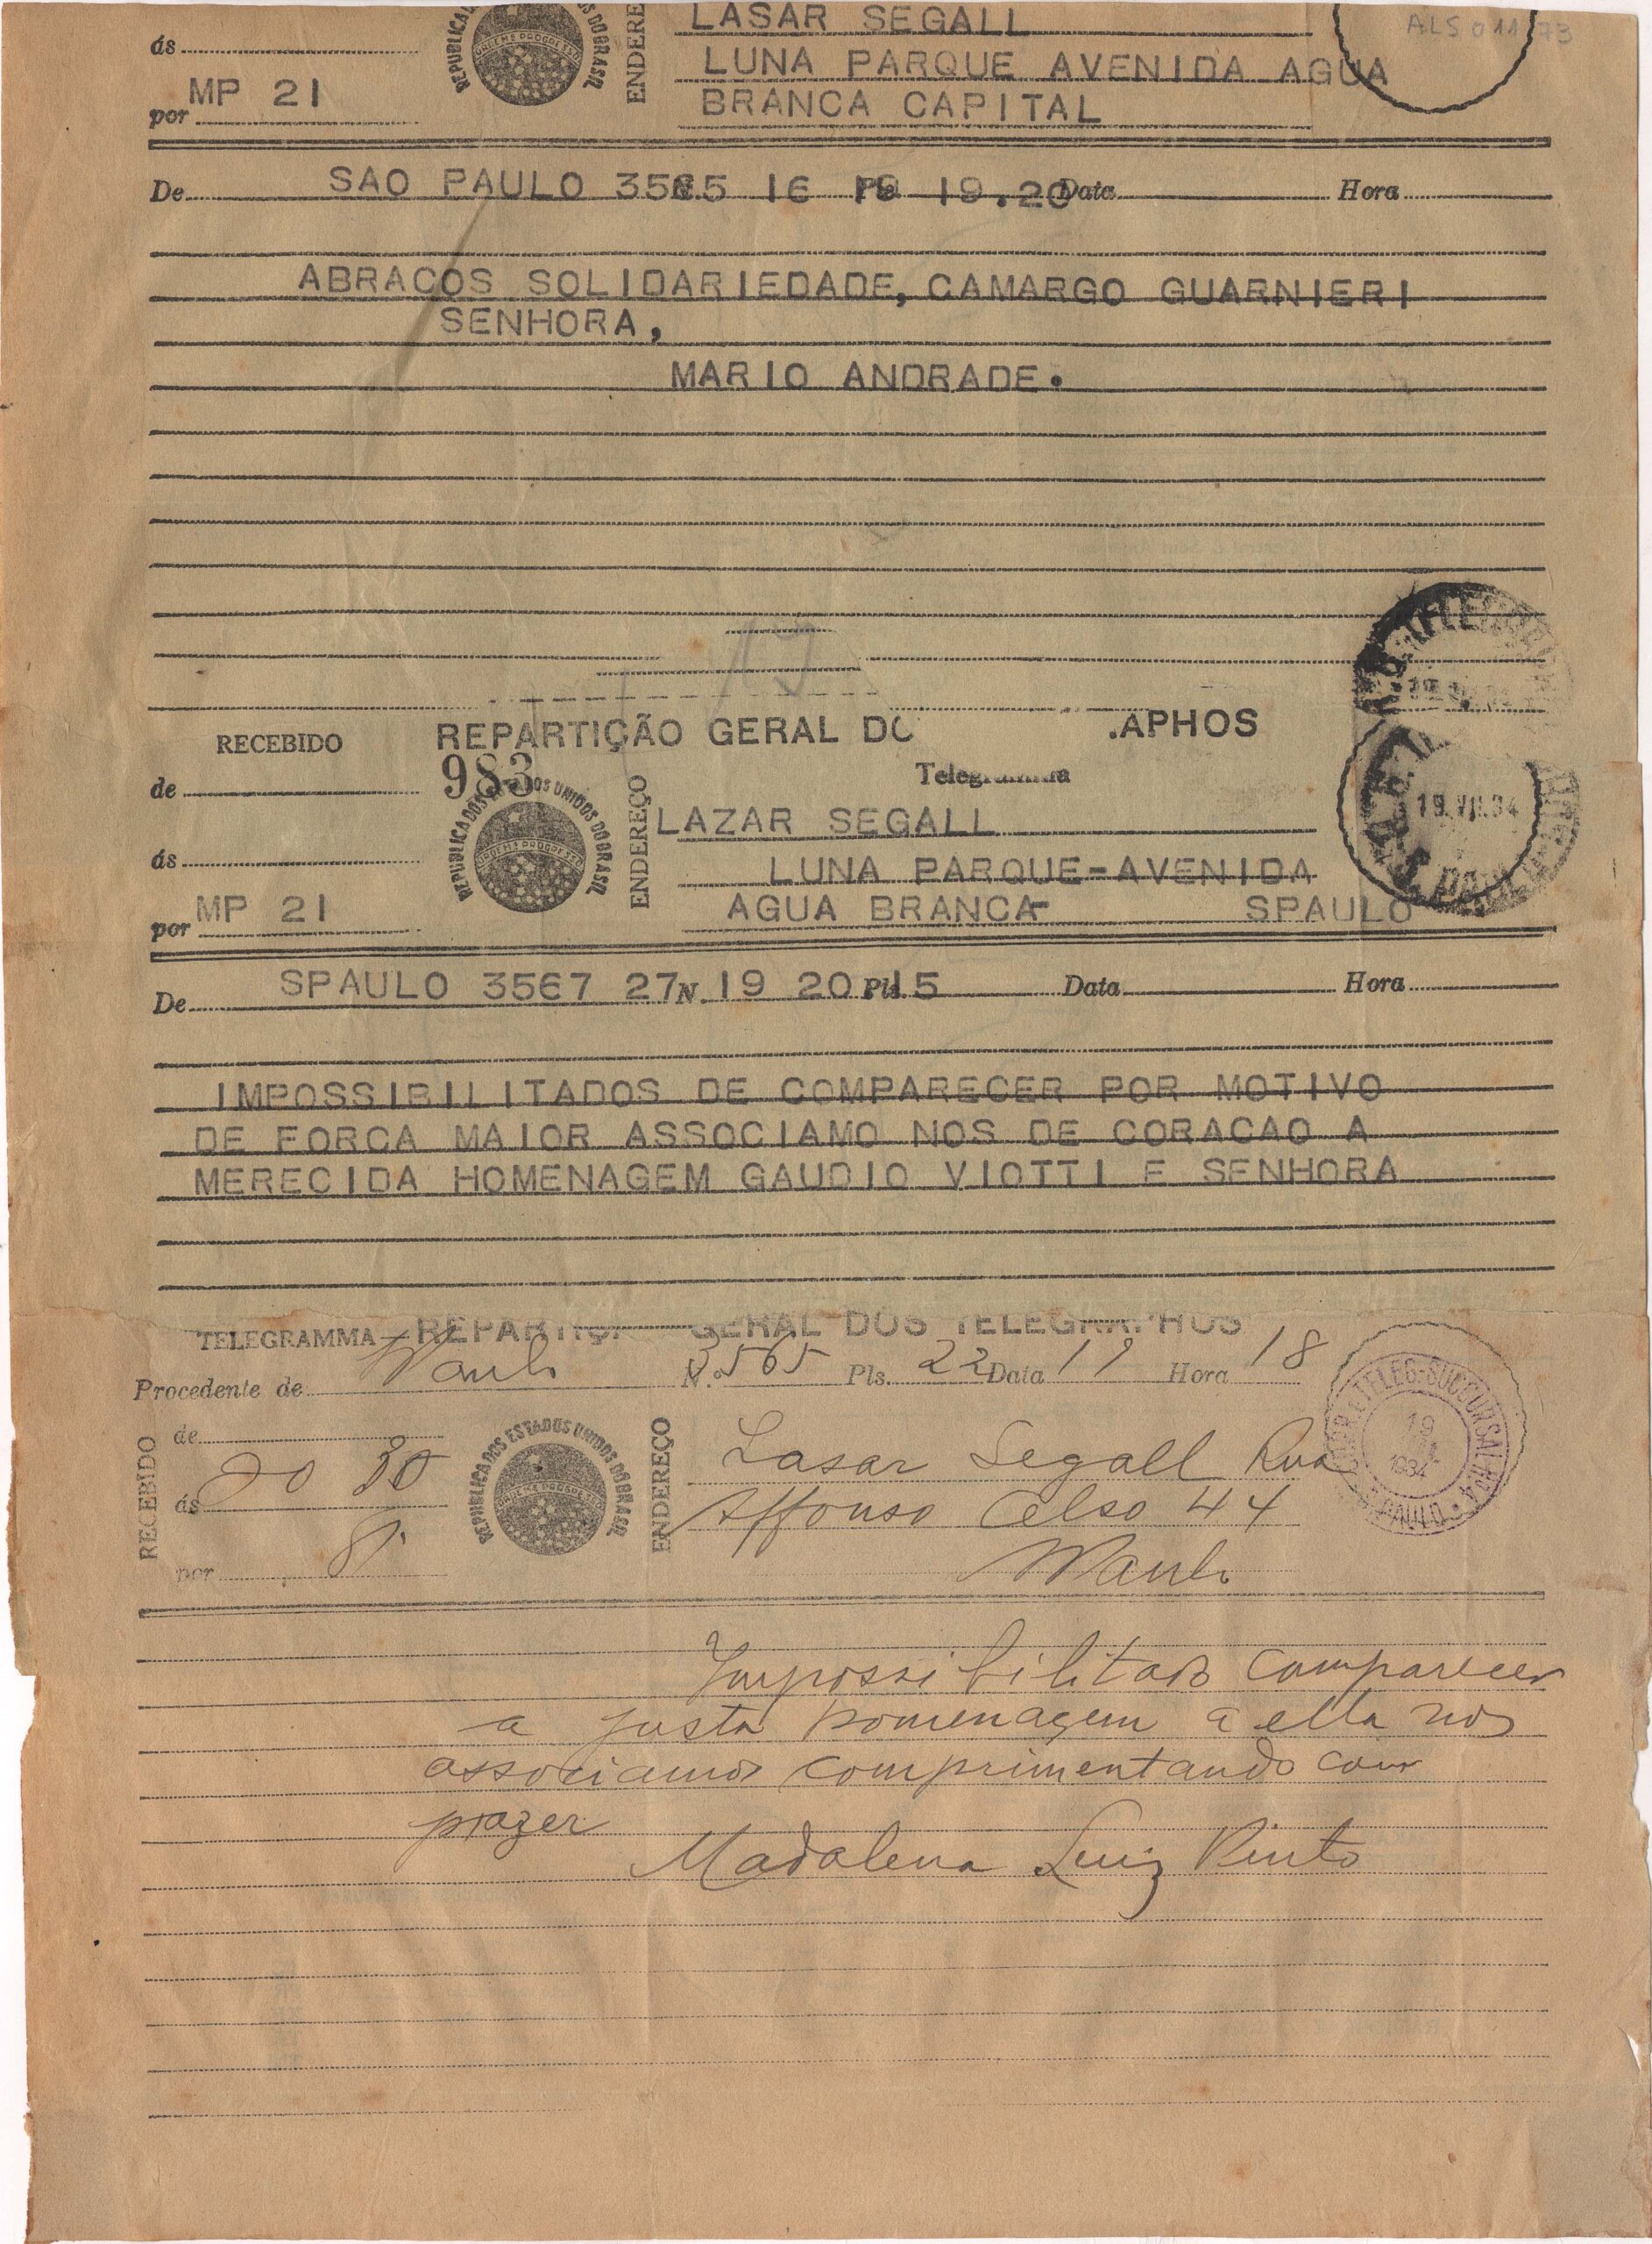 ALS 01173
LASAR SEGALL
ás
REPUBLICA DO BRASIL
ORDEM E PROGRESSO
ENDERE
LUNA PARQUE AVENIDA AGUA
por MP 21
BRANCA CAPITAL
De SAO PAULO 3565 16 Pls. 19 19.20 Data Hora
ABRACOS SOLIDARIEDADE, CAMARGO GUARNIERI
SENHORA,
MARIO ANDRADE.
RECEBIDO
REPARTIÇÃO GERAL DO APHOS
983
de
Telegramma
ás
REPUBLICA DOS ESTADOS UNIDOS DO BRASIL
ORDEM E PROGRESSO
ENDEREÇO
LAZAR SEGALL
19.VII.34
S. PAULO
LUNA PARQUE-AVENIDA
por MP 21
AGUA BRANCA- SPAULO
De SPAULO 3567 27 N. 19 20 Pls. 15 Data Hora
IMPOSSIBILITADOS DE COMPARECER POR MOTIVO
DE FORCA MAIOR ASSOCIAMO NOS DE CORACAO A
MERECIDA HOMENAGEM GAUDIO VIOTTI E SENHORA
TELEGRAMMA REPARTIÇ GERAL DOS TELEGRAPHOS
Procedente de SPaulo N. 3565 Pls. 22 Data 19 Hora 18
RECEBIDO
de
ás 20 30
por
REPUBLICA DOS ESTADOS UNIDOS DO BRASIL
ORDEM E PROGRESSO
ENDEREÇO
Lasar Segall Rua
Affonso Celso 44
SPaulo
CORR. E TELEG-SUCCURSAL
19
1934
S. PAULO
Impossibilitados comparecer
a justa homenagem a ella nos
associamos comprimentando com
prazer
Madalena Luiz Pinto